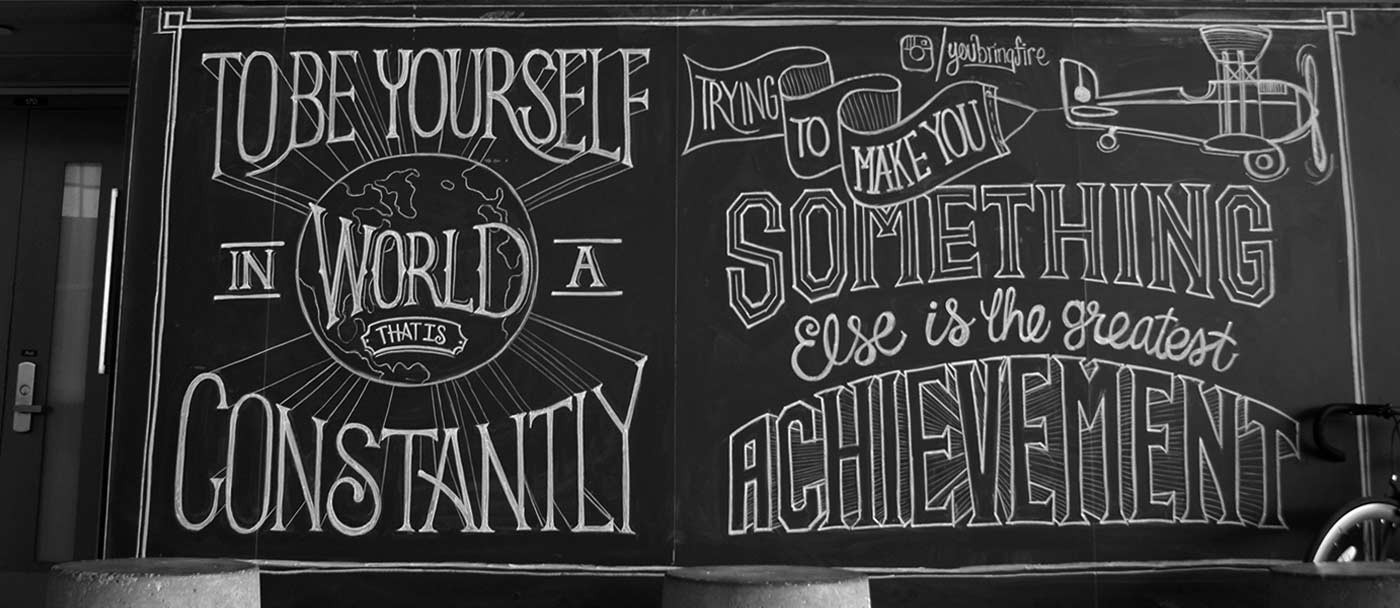 TO BE YOURSELF
IN A
WORLD
THAT IS
CONSTANTLY
TRYING
TO
MAKE YOU
/youbringfire
SOMETHING
Else is the greatest
ACHIEVEMENT